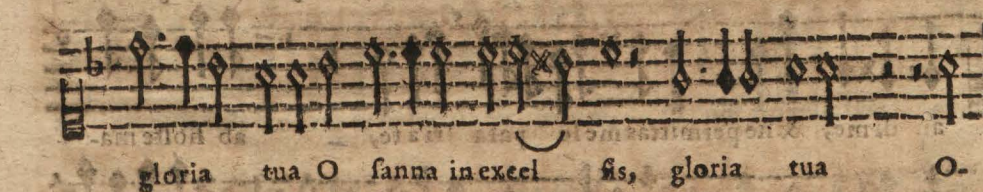 gloria tua O ſanna in exeelſis, gloria tua O-